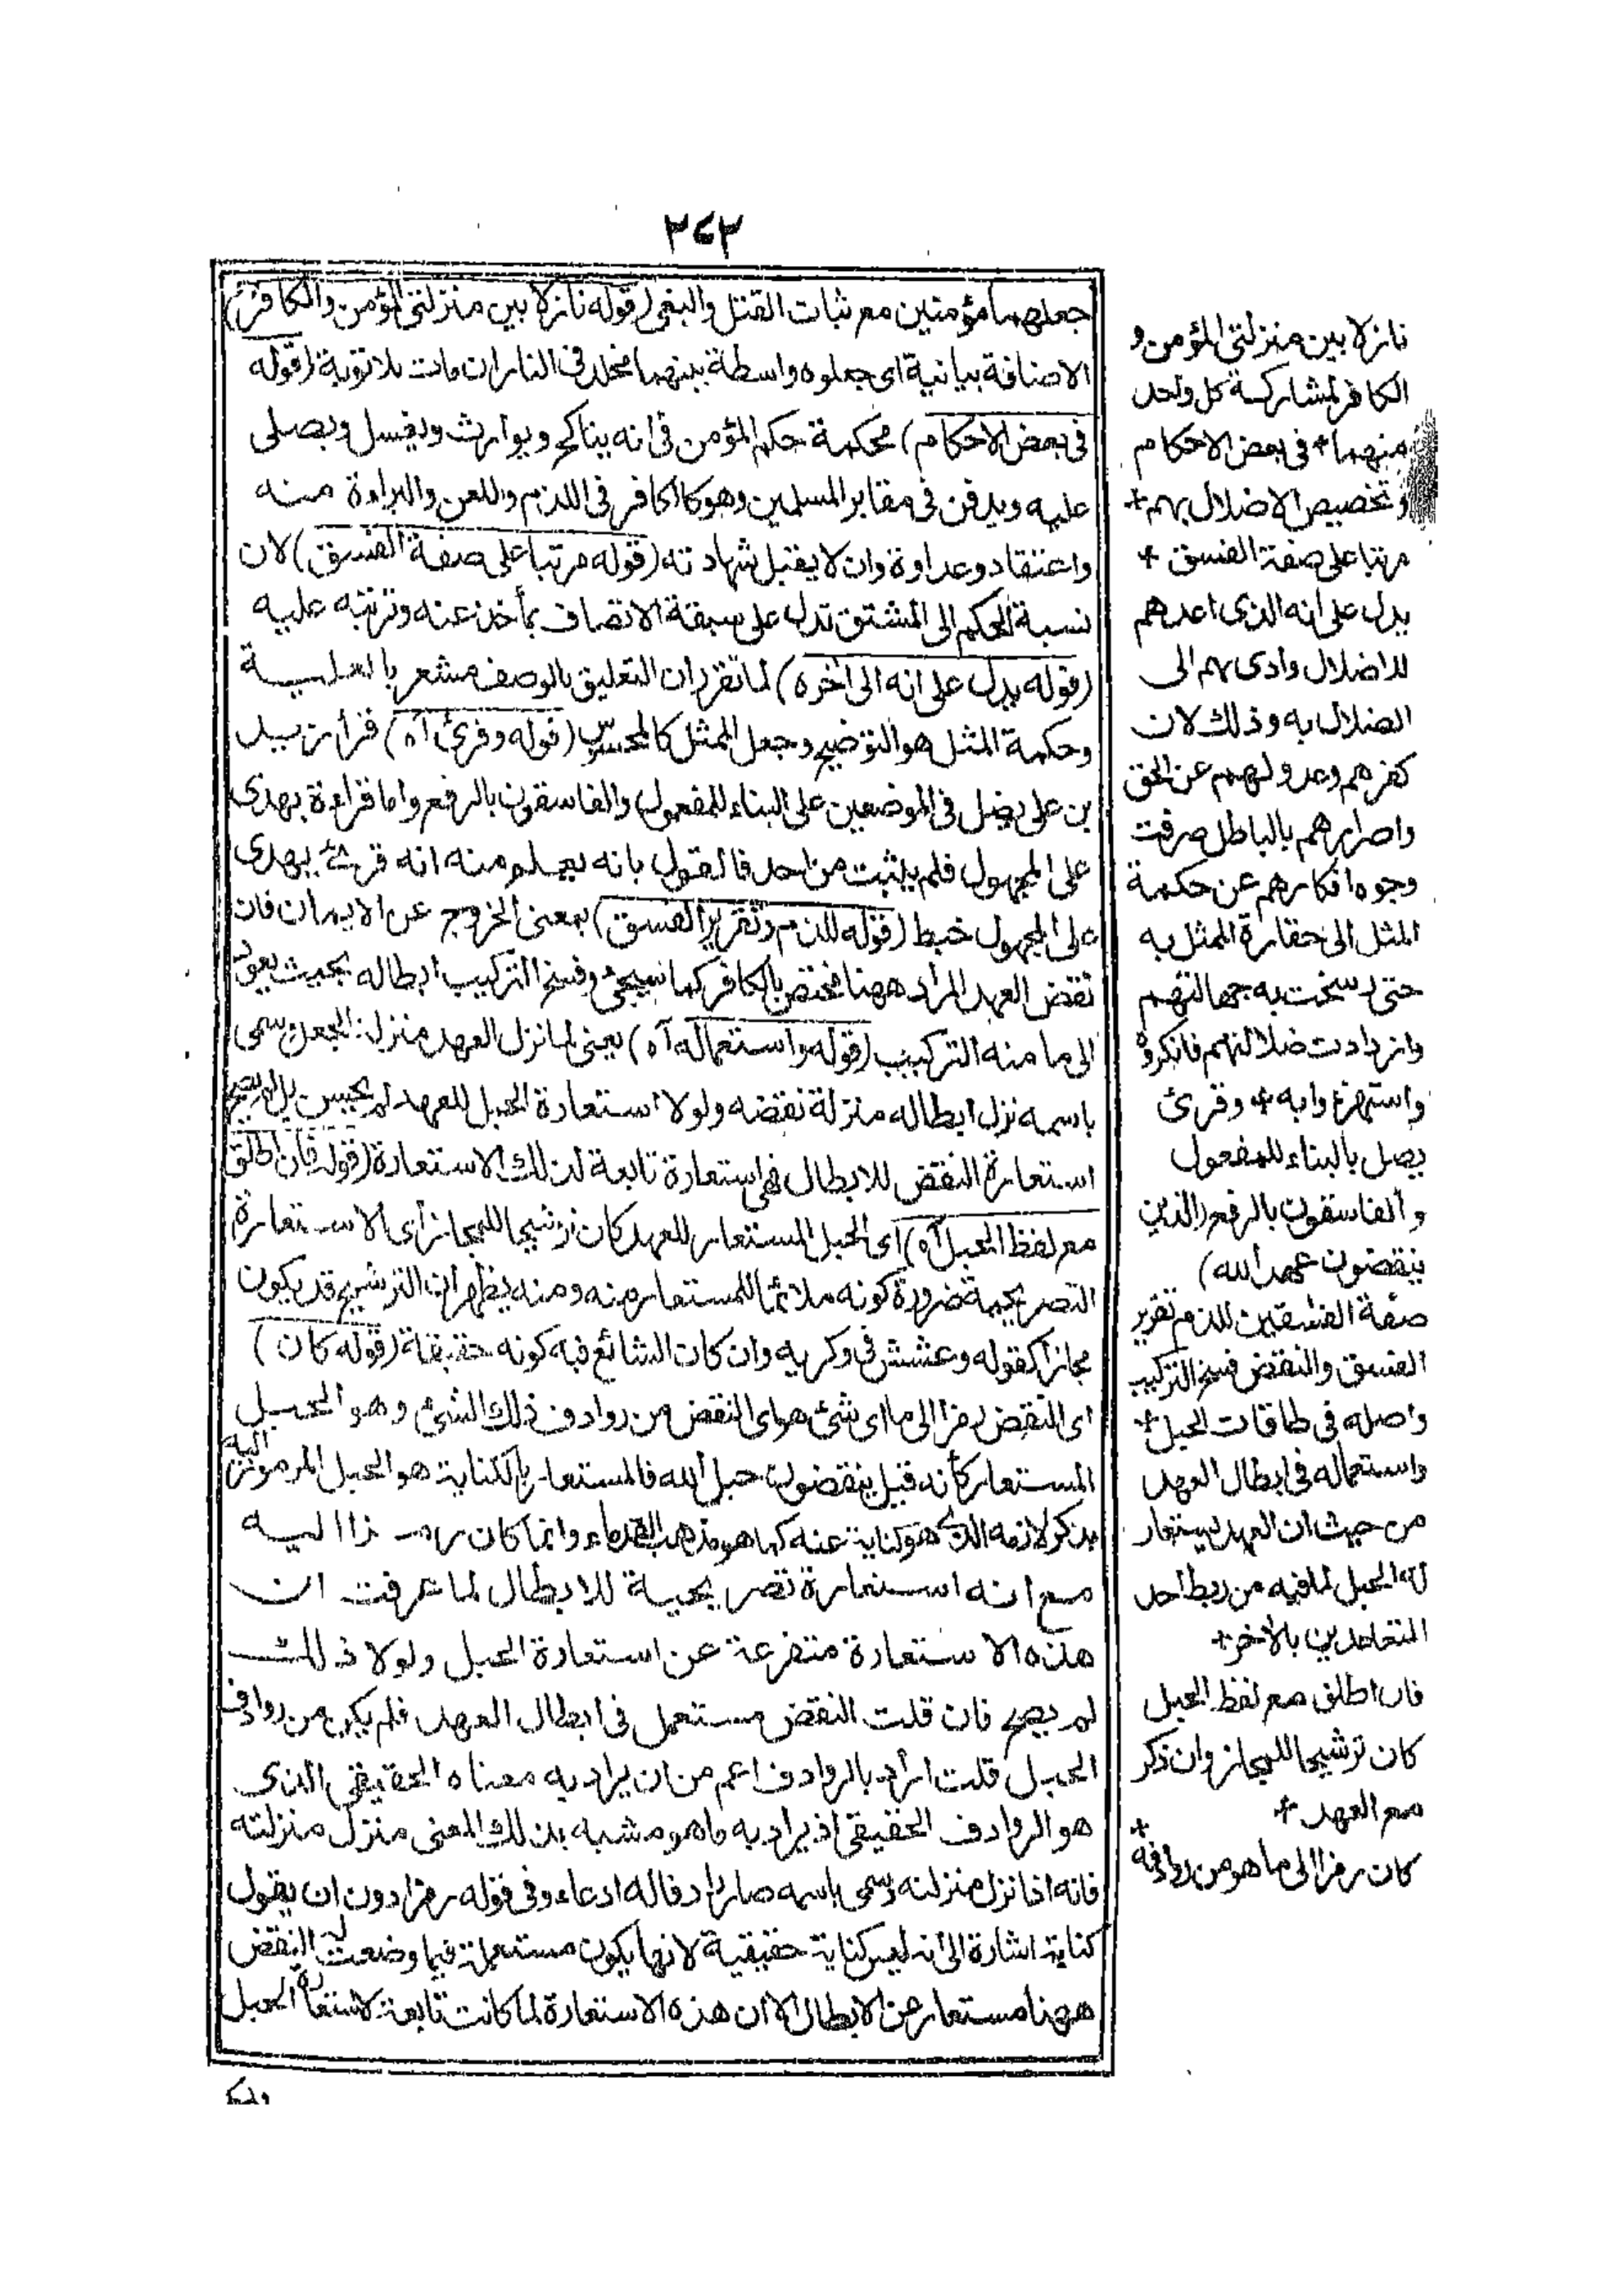 ٣٤٣
جعلهما مؤمنين مع ثبات القتل والبغي (قوله نازلا بين منزلتي المؤمن والكافر)
الاضافة بيانية اى جعلوه واسطة بينهما مخلد في النار ان مات بلا توبة (قوله
في بعض الاحكام) محكمة حكم المؤمن في انه يناكح ويوارث ويغسل ويصلى
عليه ويدفن في مقابر المسلمين وهو كالكافر في الذم واللعن والبراءة منه
واعتقاد وعداوة وان لا يقبل شهادته (قوله مرتبا على صفة الفسق) لان
نسبة الحكم الى المشتق تدل على سبقة الاتصاف بمأخذ عنه وترتبه عليه
(قوله يدل على انه الى آخره) لما تقرر ان التعليق بالوصف مشعر بالعلية
وحكمة المثل هو التوضيح وجعل الممثل كالمحسوس (قوله وقرئ آه) قرأ زيد
بن على يضل في الموضعين على البناء للمفعول والفاسقون بالرفع واما قراءة يهدى
على المجهول فلم يثبت من احد فالقول بانه يعلم منه انه قرئ يهدى
على المجهول خبط (قوله للذم وتقرير الفسق) بمعنى الخروج عن الايمان فان
نقض العهد المراد ههنا مختص بالكافر كما سيجئ وفسخ التركيب ابطاله بحيث يعود
الى ما منه التركيب (قوله واستعماله آه) يعنى لما نزل العهد منزلة الحبل وسمى
باسمه نزل ابطاله منزلة نقضه ولولا استعارة الحبل للعهد لم يحسن بل لم يصح
استعارة النقض للابطال فهى استعارة تابعة لذلك الاستعارة (قوله فان اطلق
مع لفظ الحبل آه) اى الحبل المستعار للعهد كان ترشيحا للمجاز أى الاستعارة
التصريحية ضرورة كونه ملائما للمستعار منه ومنه يظهر ان الترشيح قد يكون
مجازا كقوله وعشش في وكريه وان كان الشائع فيه كونه حقيقة (قوله كان)
اى النقض رمزا الى ما اى شئ هو اى النقض من روادف ذلك الشئ وهو الحبل
المستعار كأنه قيل ينقضون حبل الله فالمستعار بالكناية هو الحبل المرموز اليه
بذكر لازمه الذى هو كناية عنه كما هو مذهب القدماء وانما كان رمزا اليه
مع انه استعارة تصريحية للابطال لما عرفت ان
هذه الاستعارة متفرعة عن استعارة الحبل ولولا ذلك
لم يصح فان قلت النقض مستعمل في ابطال العهد فلم يكن من روادف
الحبل قلت اراد بالروادف اعم من ان يراد به معناه الحقيقي الذى
هو الروادف الحقيقي اذ يراد به ما هو مشبه بذلك المعنى منزل منزلته
فانه اذا نزل منزلته وسمى باسمه صار رادفا له ادعاء وفي قوله رمزا دون ان يقول
كناية اشارة الى أنه ليس كناية حقيقية لانها يكون مستعملة فيما وضعت له النقض
ههنا مستعار من الابطال الا ان هذه الاستعارة لما كانت تابعة لاستعارة الحبل
نازلا بين منزلتي المؤمن و
الكافر لمشاركة كل واحد
منهما + في بعض الاحكام
وتخصيص الاضلال بهم +
مرتبا على صفة الفسق +
يدل على انه الذى اعدهم
للاضلال وادى بهم الى
الضلال به وذلك لان
كفرهم وعدولهم عن الحق
واصرارهم بالباطل صرفت
وجوه افكارهم عن حكمة
المثل الى حقارة الممثل به
حتى رسخت به جهالتهم
وازدادت ضلالتهم فانكروه
واستهزؤا به + وقرئ
يضل بالبناء للمفعول
والفاسقون بالرفع (الذين
ينقضون عهد الله)
صفة الفاسقين للذم وتقرير
الفسق والنقض فسخ التركيب
واصله في طاقات الحبل +
واستعماله في ابطال العهد
من حيث ان العهد يستعار
له الحبل لما فيه من ربط احد
المتعاهدين بالآخر +
فان اطلق مع لفظ الحبل
كان ترشيحا للمجاز وان ذكر
مع العهد +
كان رمزا الى ما هو من روادفه +